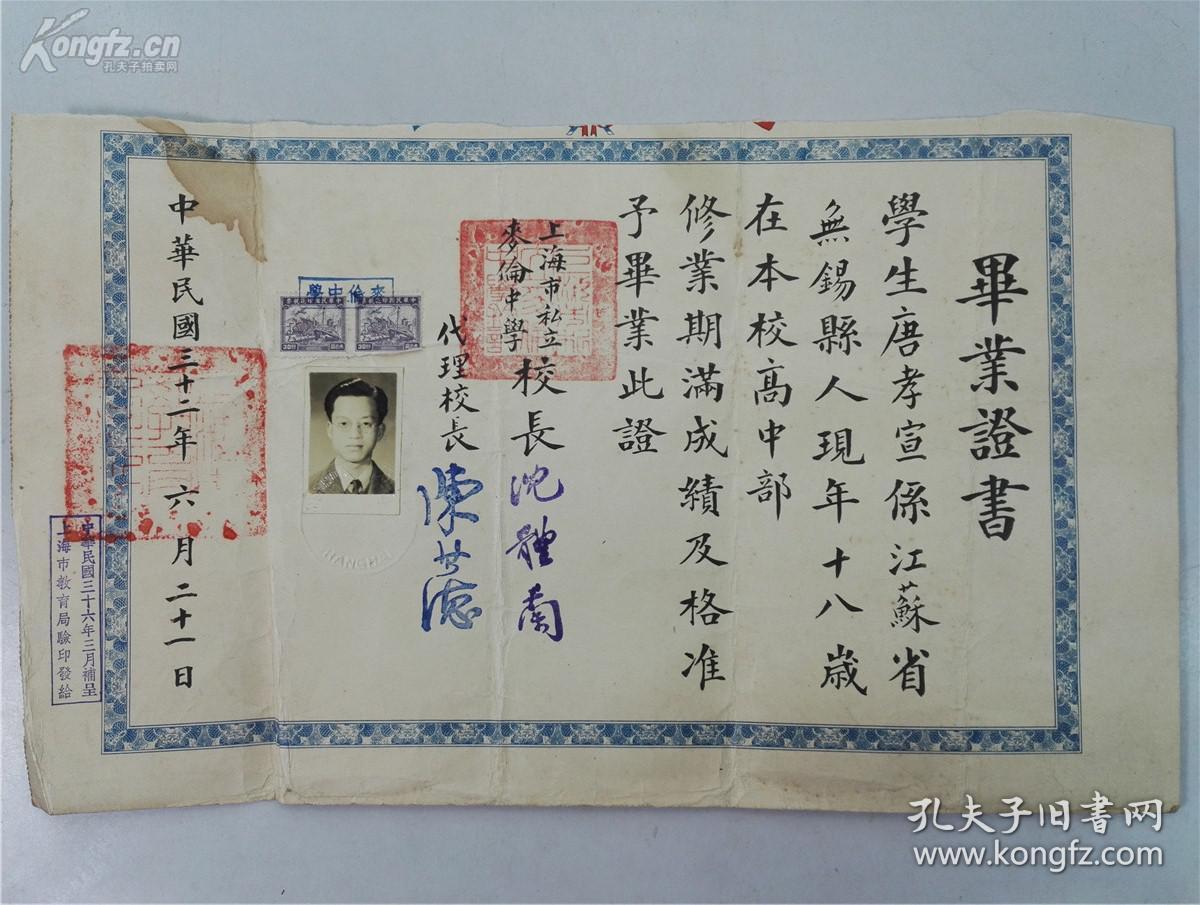 畢業證書
學生唐孝宣係江蘇省
無錫縣人現年十八歲
在本校高中部
修業期滿成績及格准
予畢業此證
上海市私立
麥倫中學
校長沈體蘭
代理校長
麥倫中學
中華民國三十二年六月二十一日
中華民國三十六年三月補呈
上海市教育局驗印發給
Kongfz.cn
孔夫子拍卖网
孔夫子旧书网
www.kongfz.com